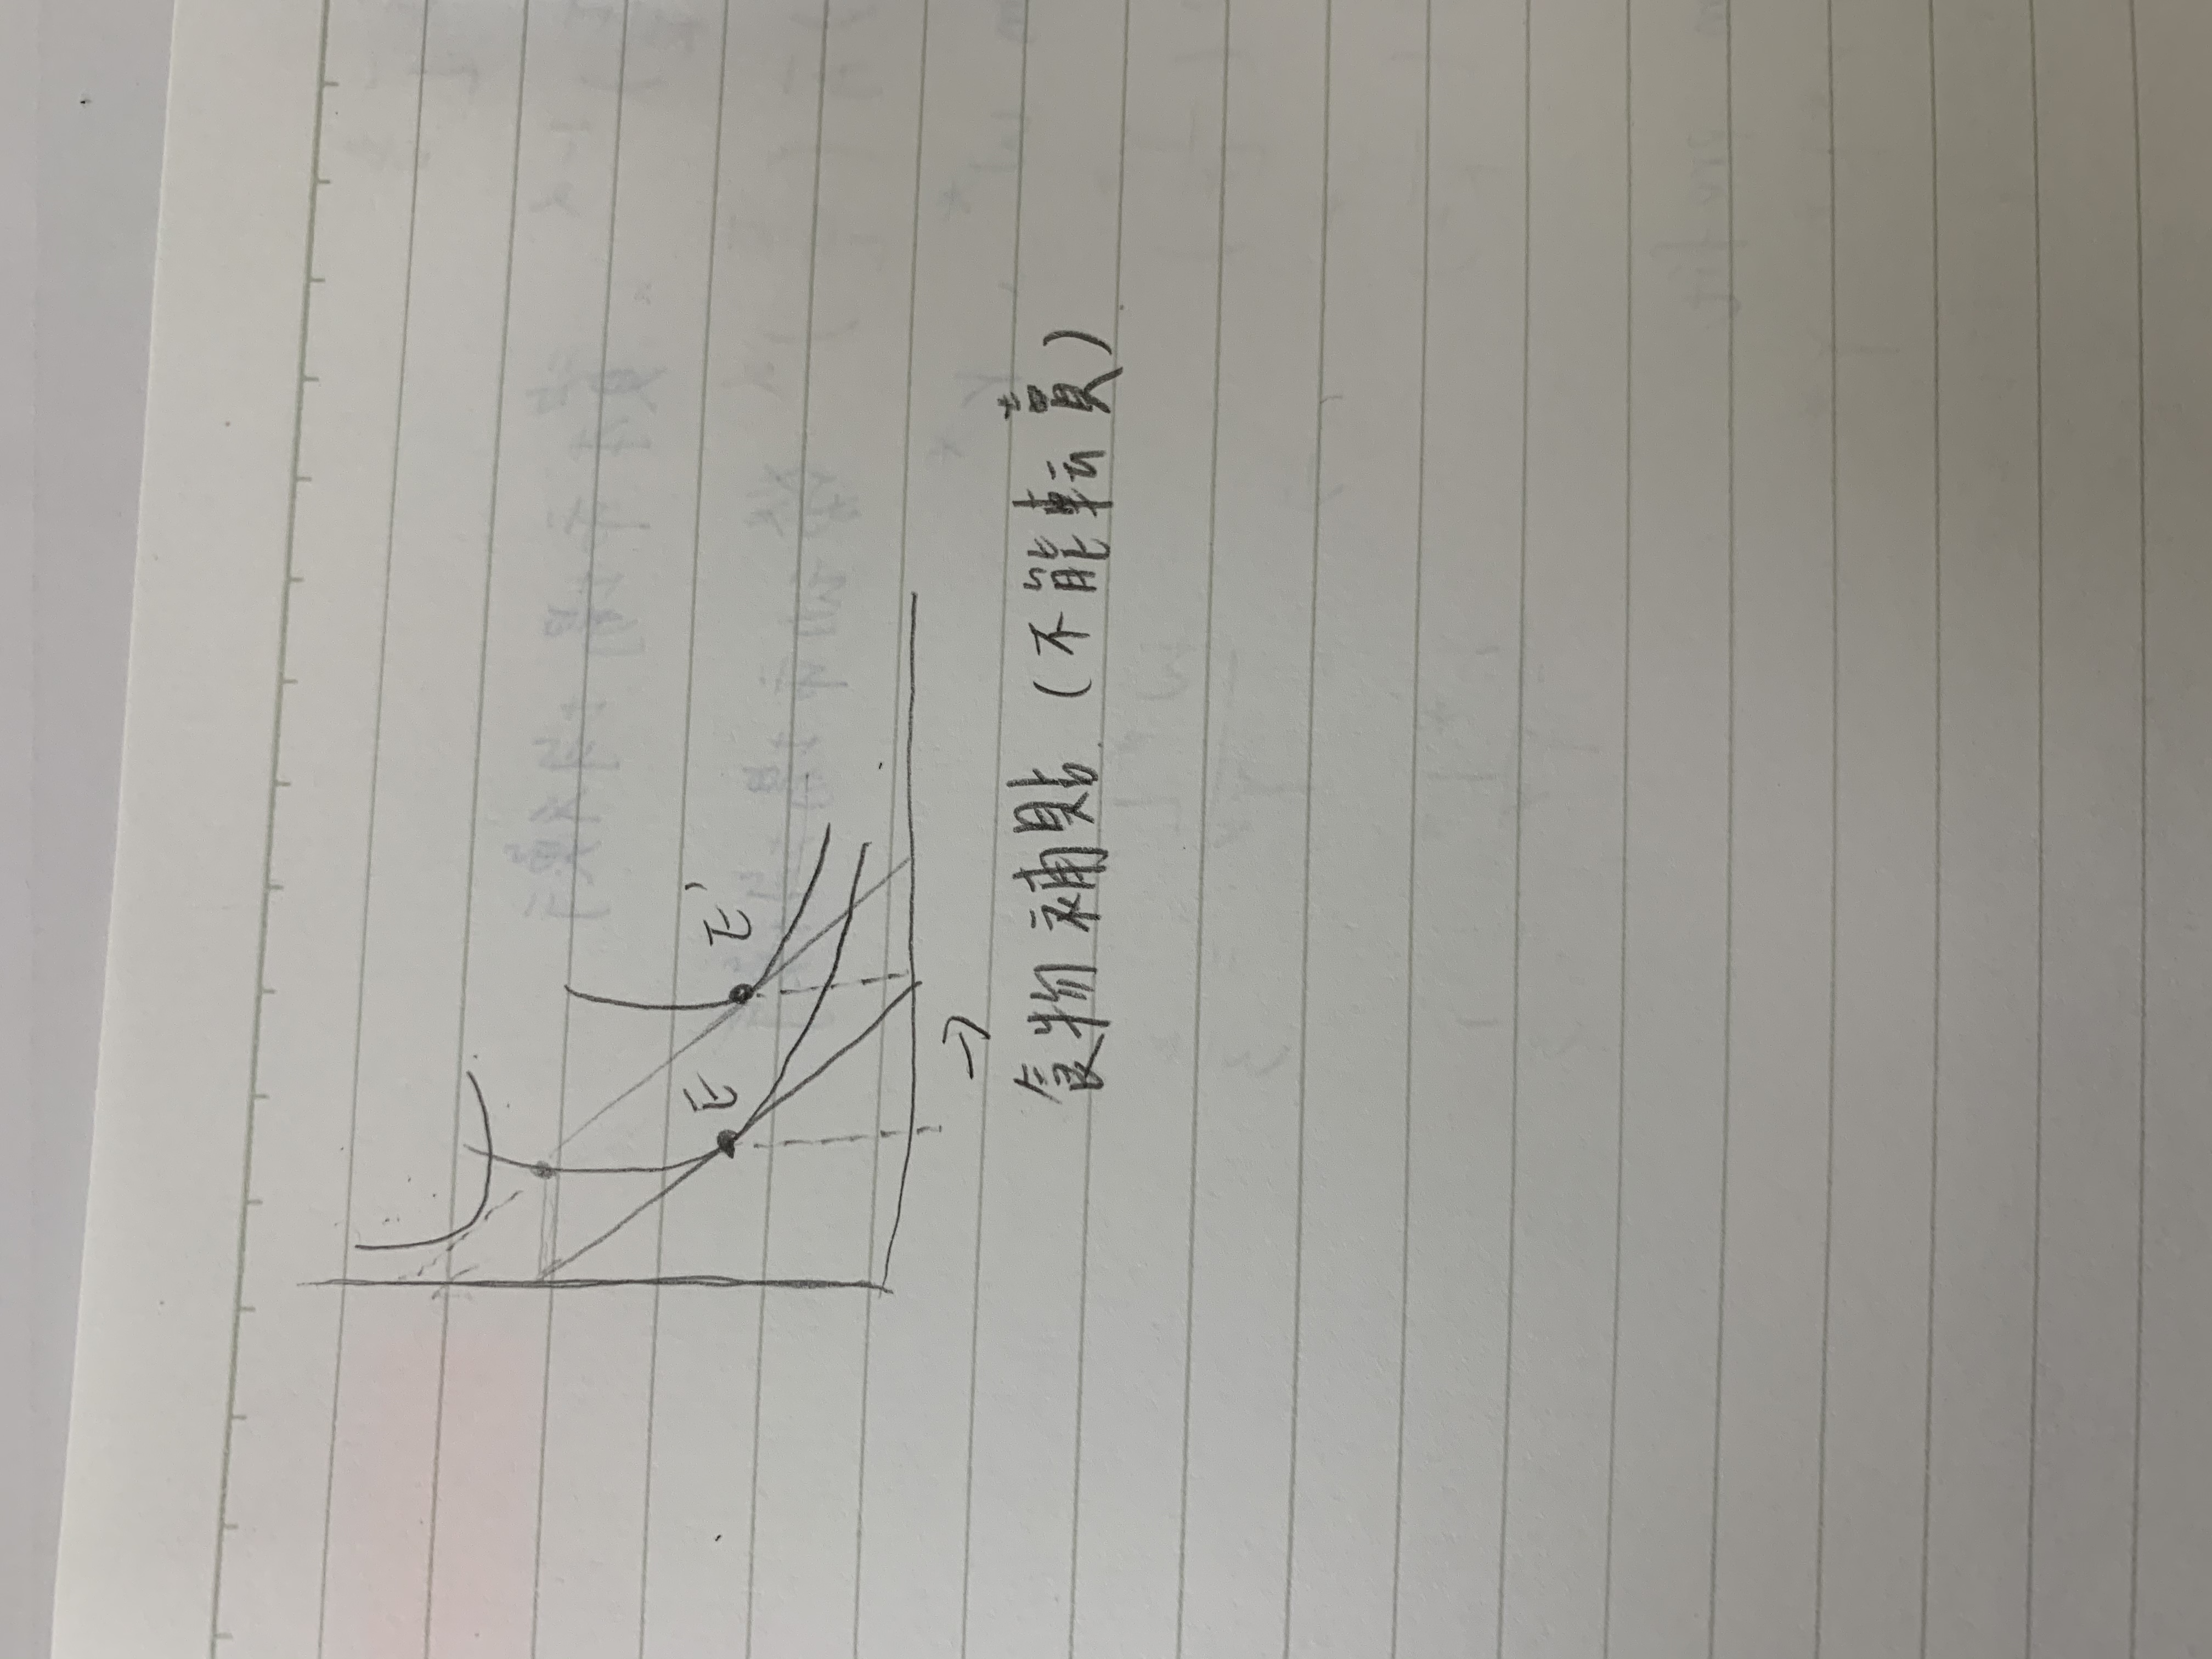 E E'
→
食物補貼(不能転賣)